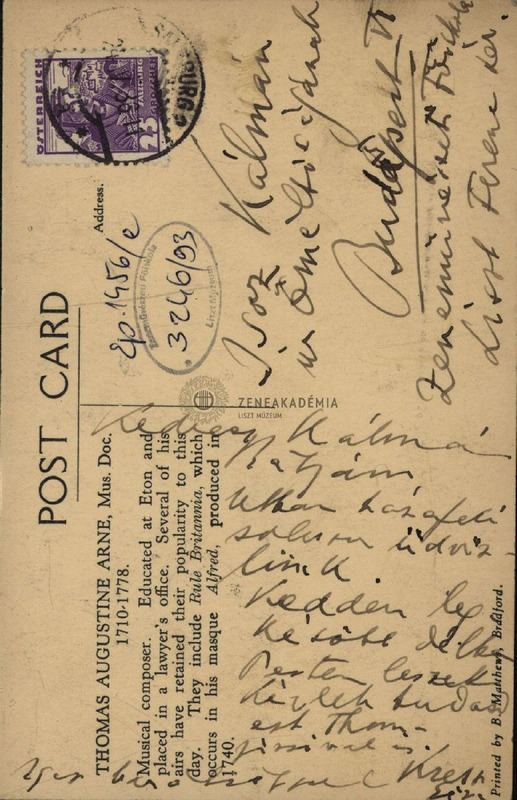 POST CARD
Address.
THOMAS AUGUSTINE ARNE, Mus. Doc.
1710-1778.
Musical composer. Educated at Eton and
placed in a lawyer's office. Several of his
airs have retained their popularity to this
day. They include Rule Britannia, which
occurs in his masque Alfred, produced in
1740.
Printed by B. Matthews, Bradford.
ÖSTERREICH
SALZBURG
Ep. 1456/e
3246/93
Liszt Múzeum
ZENEAKADÉMIA
LISZT MÚZEUM
Isoz Kálmán
úr Őméltóságának
Budapest VI
Zeneművészeti Főiskola
Liszt Ferenc tér.
Kedves Kálmán
bátyám
Utban hazafelé
üdvöz-
lünk
Kedden leg
később délben
Pesten leszek
Kérlek tudasd
ezt Thom-